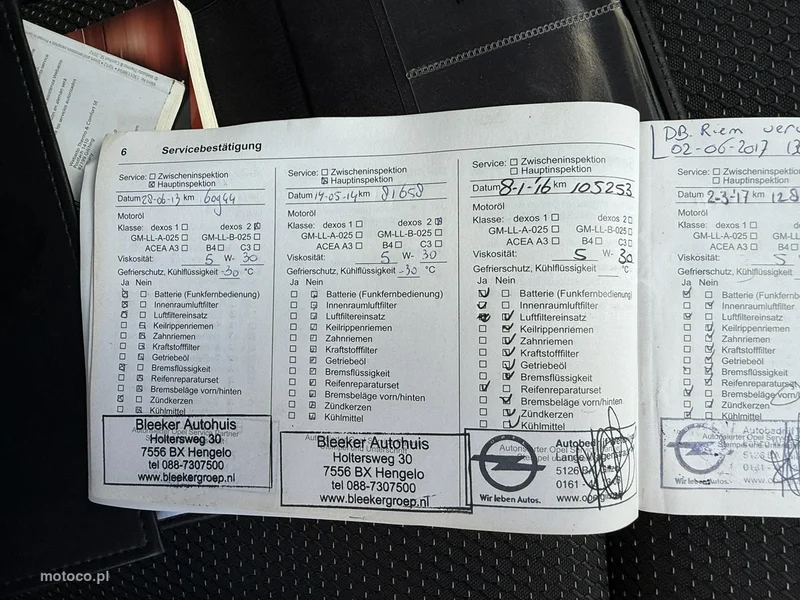 6 Servicebestätigung
Service: ☐ Zwischeninspektion
☒ Hauptinspektion
Datum 28-06-13 km 60944
Motoröl
Klasse: dexos 1 ☐ dexos 2 ☒
GM-LL-A-025 ☐ GM-LL-B-025 ☐
ACEA A3 ☐ B4 ☐ C3 ☐
Viskosität: 5 W- 30
Gefrierschutz, Kühlflüssigkeit -30 °C
Ja Nein
Batterie (Funkfernbedienung)
Innenraumluftfilter
Luftfiltereinsatz
Keilrippenriemen
Zahnriemen
Kraftstofffilter
Getriebeöl
Bremsflüssigkeit
Reifenreparaturset
Bremsbeläge vorn/hinten
Zündkerzen
Kühlmittel
Bleeker Autohuis
Holtersweg 30
7556 BX Hengelo
tel 088-7307500
www.bleekergroep.nl
Service: ☐ Zwischeninspektion
☒ Hauptinspektion
Datum 14-05-14 km 81658
Motoröl
Klasse: dexos 1 ☐ dexos 2 ☒
GM-LL-A-025 ☐ GM-LL-B-025 ☐
ACEA A3 ☐ B4 ☐ C3 ☐
Viskosität: 5 W- 30
Gefrierschutz, Kühlflüssigkeit -30 °C
Ja Nein
Batterie (Funkfernbedienung)
Innenraumluftfilter
Luftfiltereinsatz
Keilrippenriemen
Zahnriemen
Kraftstofffilter
Getriebeöl
Bremsflüssigkeit
Reifenreparaturset
Bremsbeläge vorn/hinten
Zündkerzen
Kühlmittel
Bleeker Autohuis
Holtersweg 30
7556 BX Hengelo
tel 088-7307500
www.bleekergroep.nl
Service: ☐ Zwischeninspektion
☐ Hauptinspektion
Datum 8-1-16 km 105253
Motoröl
Klasse: dexos 1 ☐ dexos 2 ☐
GM-LL-A-025 ☐ GM-LL-B-025 ☐
ACEA A3 ☐ B4 ☐ C3 ☐
Viskosität: 5 W- 30
Gefrierschutz, Kühlflüssigkeit °C
Ja Nein
Batterie (Funkfernbedienung)
Innenraumluftfilter
Luftfiltereinsatz
Keilrippenriemen
Zahnriemen
Kraftstofffilter
Getriebeöl
Bremsflüssigkeit
Reifenreparaturset
Bremsbeläge vorn/hinten
Zündkerzen
Kühlmittel
Autorisierter Opel Service
Lange
5126 B
0161 -
www.op
Wir leben Autos.
DB. Riem
02-06-2017
Service: ☐ Zwischeninspektion
☐ Hauptinspektion
Datum 2-3-'17 km 128
Motoröl
Klasse: dexos 1 ☐
GM-LL-A-025 ☐
ACEA A3 ☐
Viskosität: 5
Gefrierschutz, Kühlflüssigkeit
Ja Nein
Batterie (Funkfernbedienung)
Innenraumluftfilter
Luftfiltereinsatz
Keilrippenriemen
Zahnriemen
Kraftstofffilter
Getriebeöl
Bremsflüssigkeit
Reifenreparaturset
Bremsbeläge vorn/hinten
Zündkerzen
Kühlmittel
Wir leben Autos.
motoco.pl